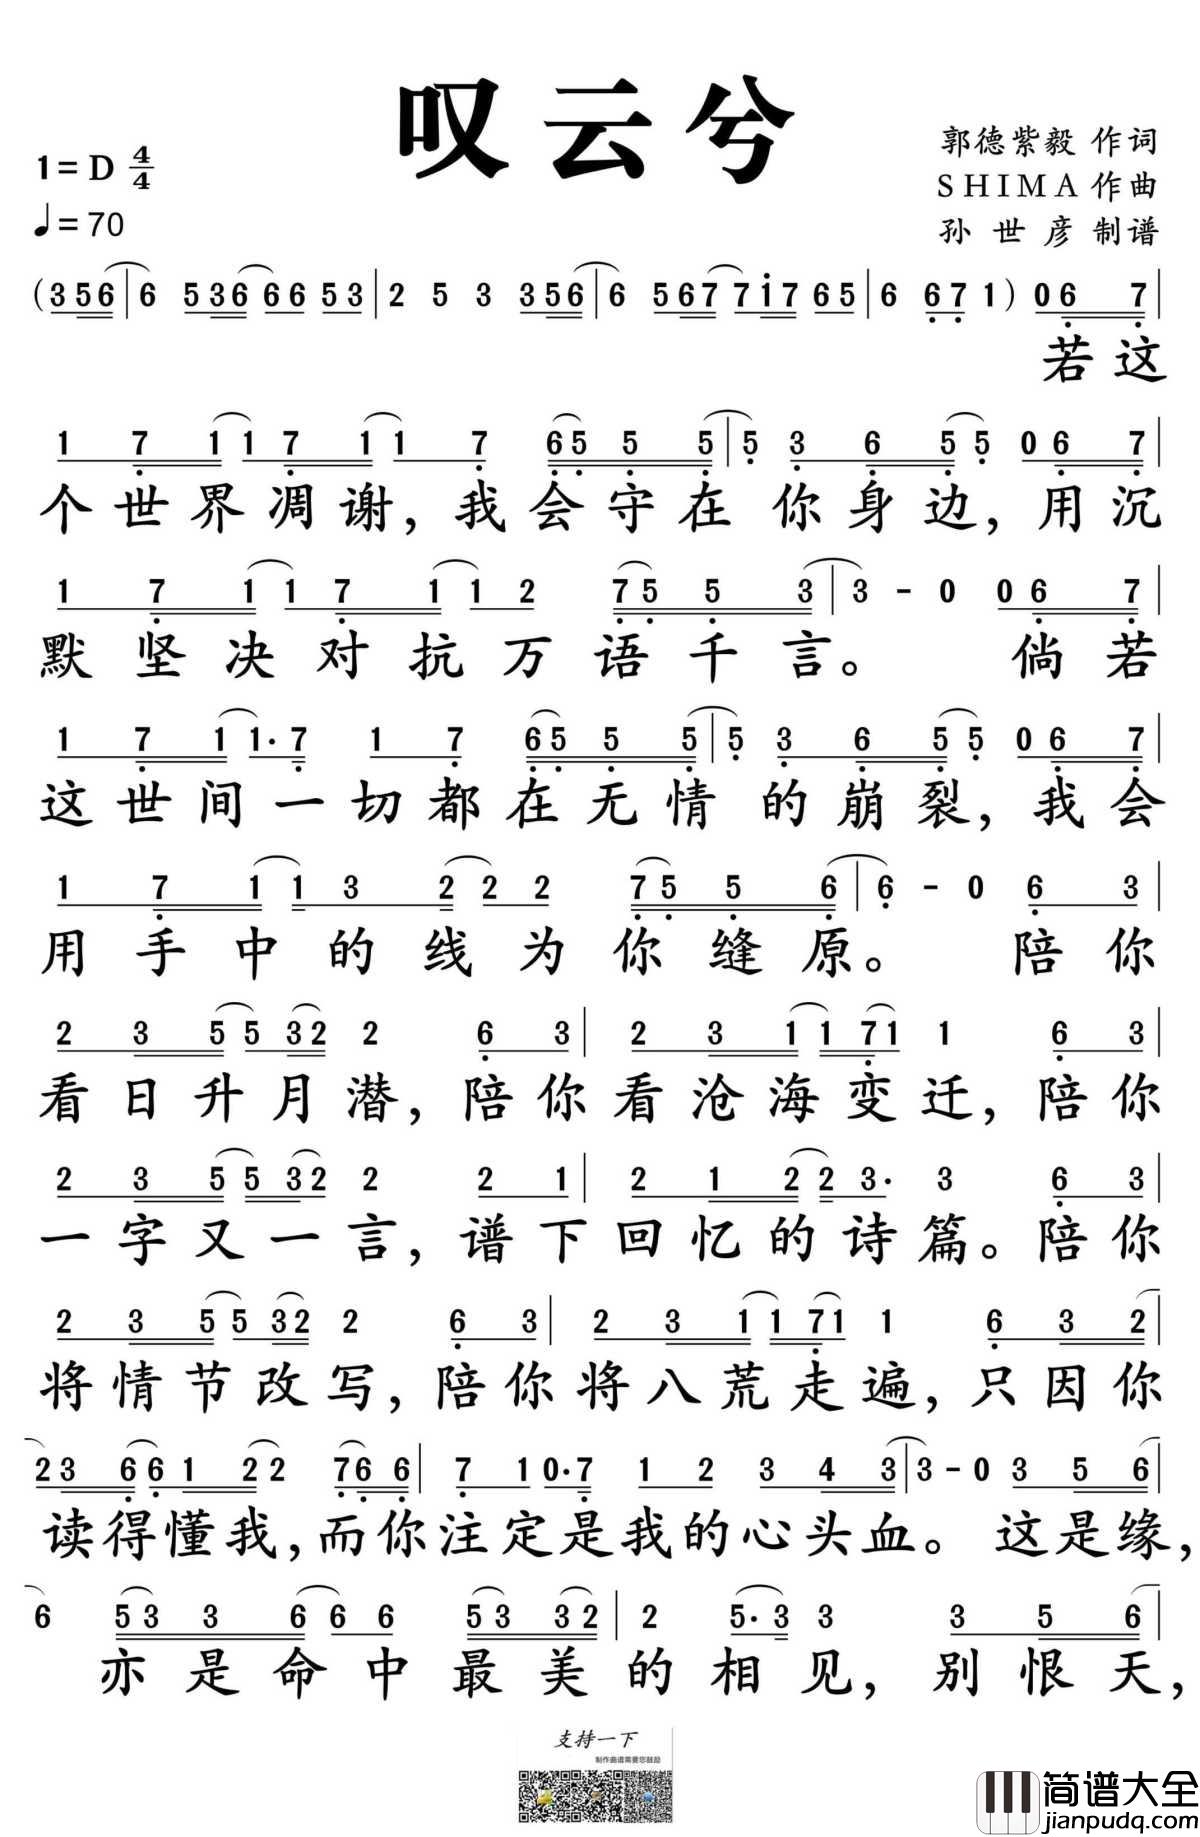 叹云兮
1=D 4/4
♩=70
郭德紫毅 作词
SHIMA 作曲
孙世彦 制谱
(3 5 6 | 6 5 3 6 6 6 5 3 | 2 5 3 3 5 6 | 6 5 6 7 7 i 7 6 5 | 6 6 7 1) 0 6 7 |
若这
1 7 1 1 7 1 1 7 6 5 5 5 | 5 3 6 5 5 0 6 7 |
个世界凋谢,我会守在你身边,用沉
1 7 1 1 7 1 1 2 7 5 5 3 | 3 - 0 0 6 7 |
默坚决对抗万语千言。 倘若
1 7 1 1· 7 1 7 6 5 5 5 | 5 3 6 5 5 0 6 7 |
这世间一切都在无情的崩裂,我会
1 7 1 1 3 2 2 2 7 5 5 6 | 6 - 0 6 3 |
用手中的线为你缝原。 陪你
2 3 5 5 3 2 2 6 3 | 2 3 1 1 7 1 1 6 3 |
看日升月潜,陪你看沧海变迁,陪你
2 3 5 5 3 2 2 2 1 | 2 1 2 2 3· 3 6 3 |
一字又一言,谱下回忆的诗篇。陪你
2 3 5 5 3 2 2 6 3 | 2 3 1 1 7 1 1 6 3 2 |
将情节改写,陪你将八荒走遍,只因你
2 3 6 6 1 2 2 7 6 6 | 7 1 0· 7 1 2 3 4 3 | 3 - 0 3 5 6 |
读得懂我,而你注定是我的心头血。 这是缘,
6 5 3 3 6 6 6 5 3 3 2 | 2 5· 3 3 3 5 6 |
亦是命中最美的相见,别恨天,
支持一下
制作曲谱需要您鼓励
简谱大全
jianpudq.com